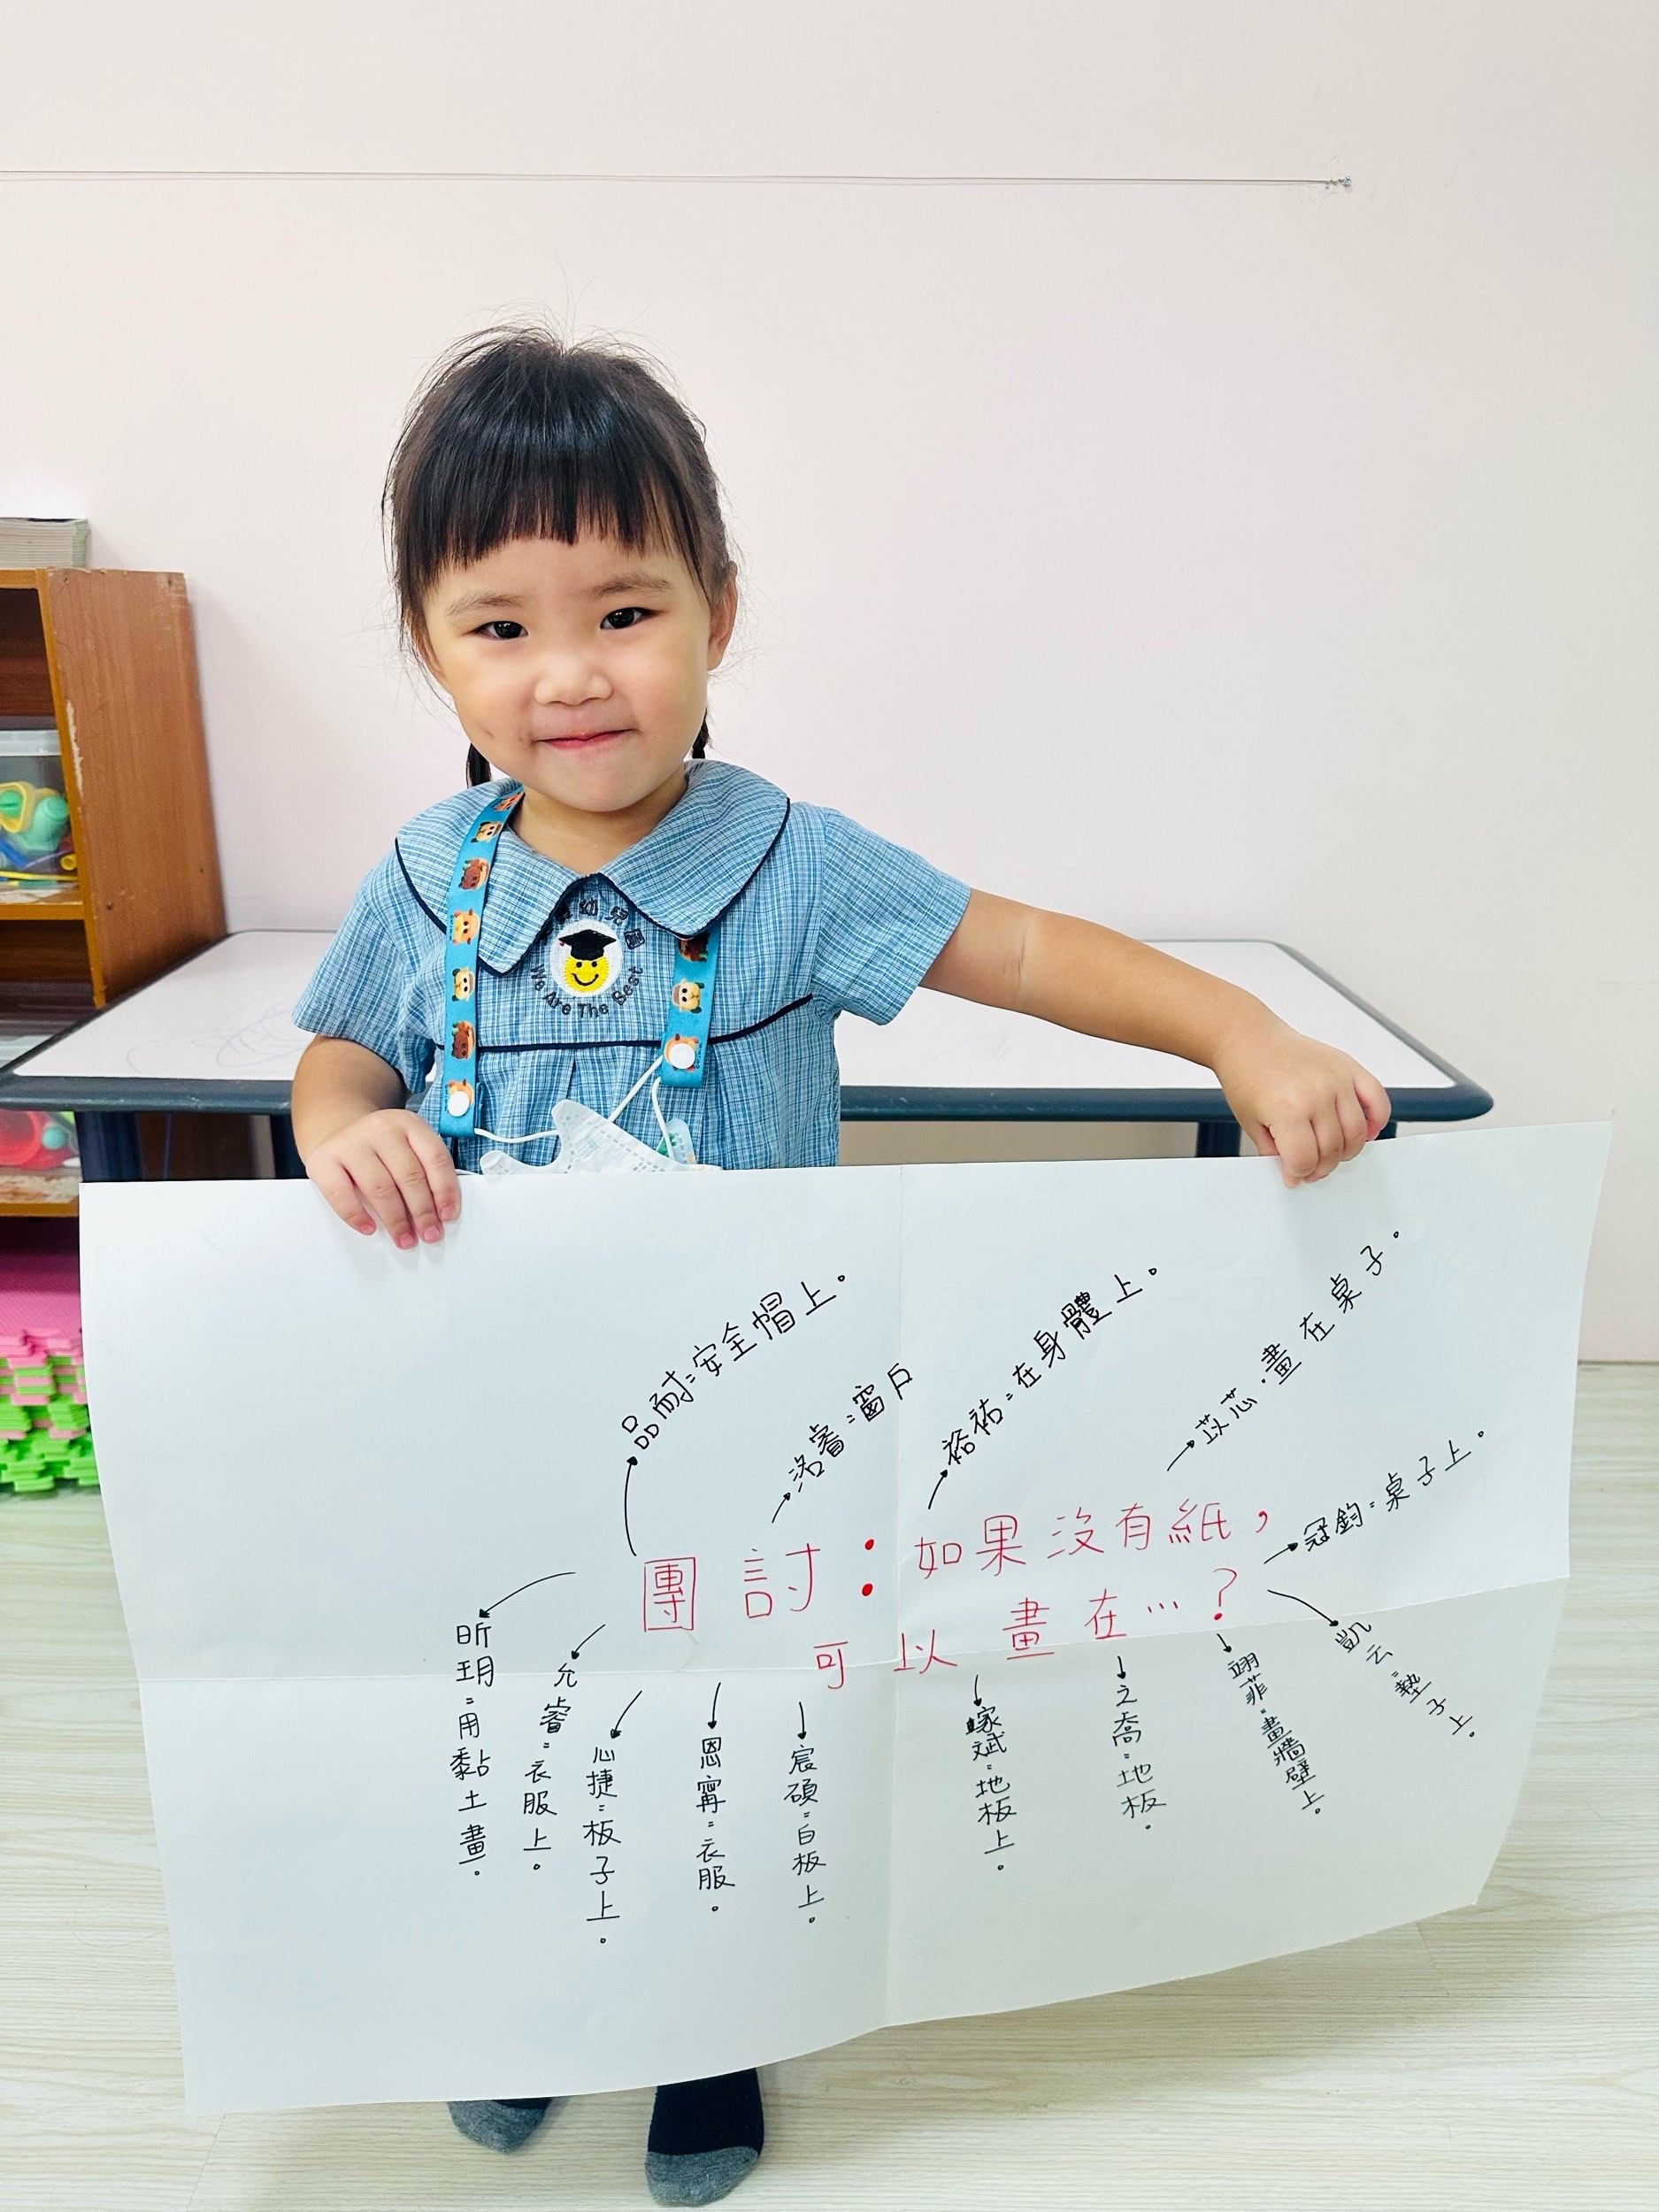 幼兒園
We Are The Best
品耐:安全帽上。
洛睿:窗戶
裕祐:在身體上。
苡芯:畫在桌子。
冠鈞:桌子上。
團討:如果沒有紙,
可以畫在…?
昕玥:用黏土畫。
允睿:衣服上。
心捷:板子上。
恩甯:衣服。
宸碩:白板上。
斌:地板上。
之喬:地板。
翊菲:畫牆壁上。
凱云:墊子上。